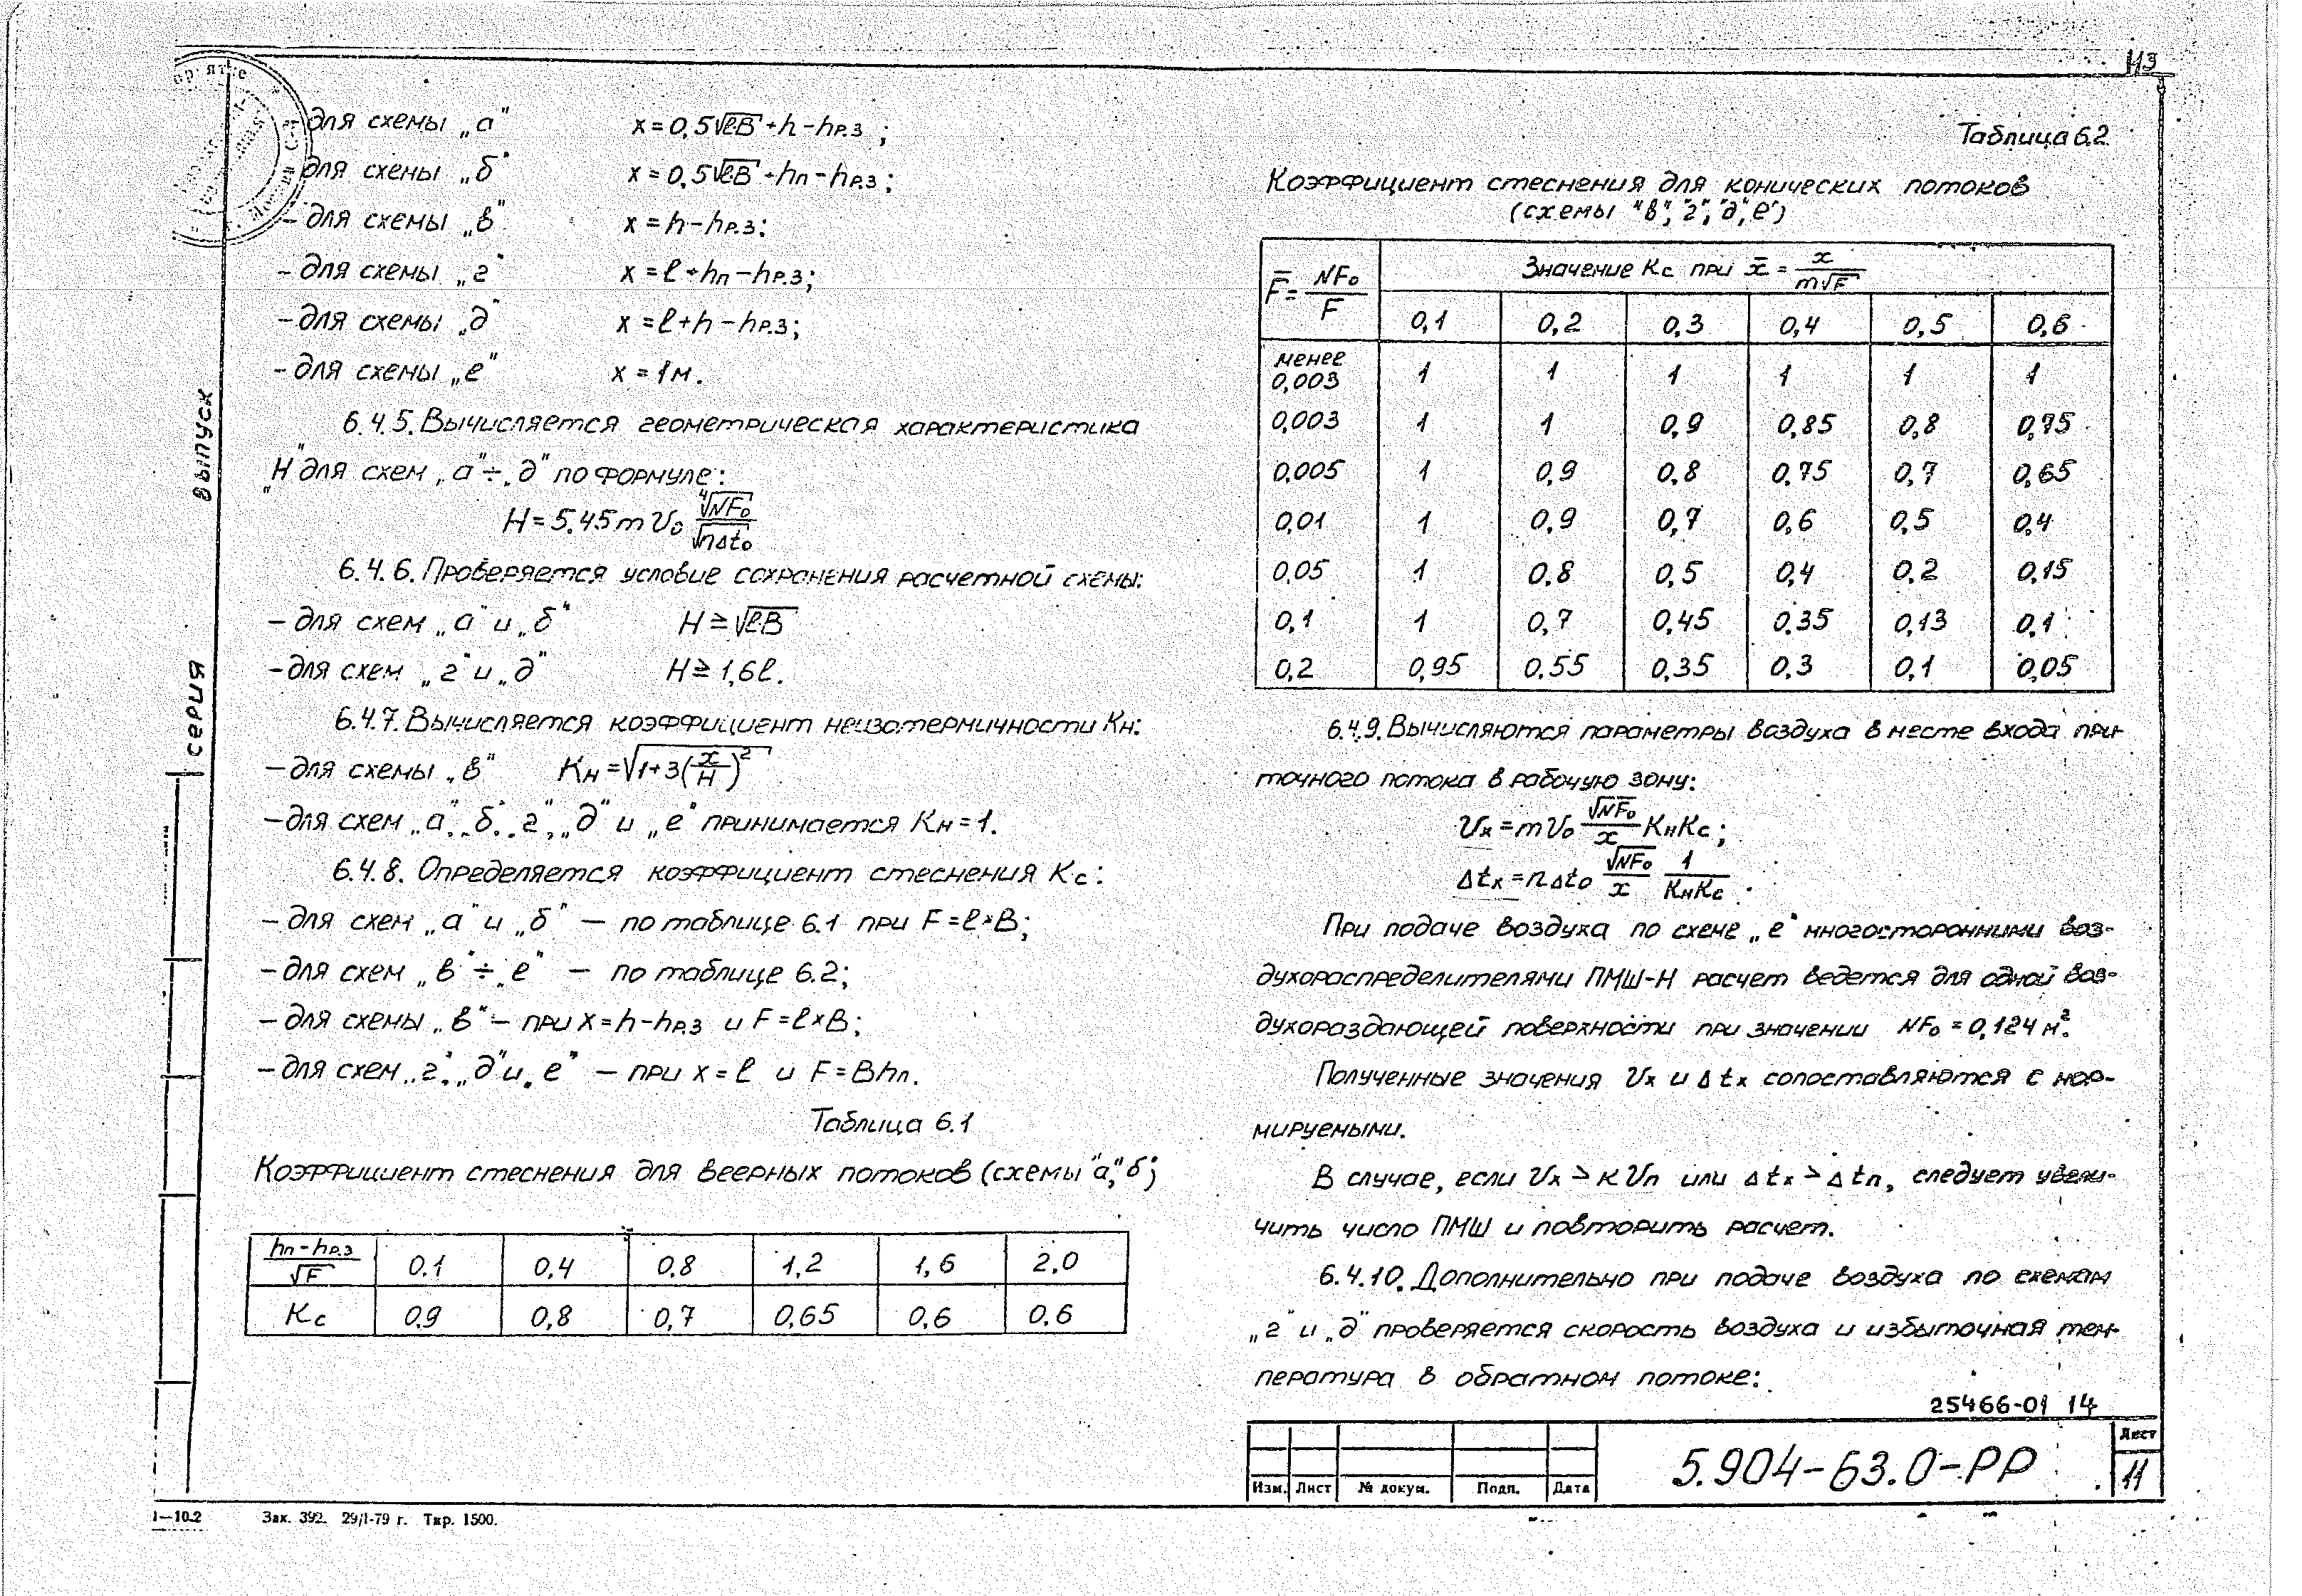 113
- для схемы „а“ x = 0,5√ℓB + h − hр.з ;
- для схемы „б“ x = 0,5√ℓB + hп − hр.з ;
- для схемы „в“ x = h − hр.з;
- для схемы „г“ x = ℓ + hп − hр.з;
- для схемы „д“ x = ℓ + h − hр.з;
- для схемы „е“ x = 1м.
6.4.5. Вычисляется геометрическая характеристика
„H“ для схем „а“ ÷ „д“ по формуле:
H = 5.45 m υ₀ ⁴√NF₀ / √nΔt₀
6.4.6. Проверяется условие сохранения расчетной схемы:
- для схем „а“ и „б“ H ≥ √ℓB
- для схем „г“ и „д“ H ≥ 1,6ℓ.
6.4.7. Вычисляется коэффициент неизотермичности Kн:
- для схемы „в“ Kн = √1+3(x/H)²
- для схем „а“, „б“, „г“, „д“ и „е“ принимается Kн = 1.
6.4.8. Определяется коэффициент стеснения Kс:
- для схем „а“ и „б“ — по таблице 6.1 при F = ℓ×B;
- для схем „в“ ÷ „е“ — по таблице 6.2;
- для схемы „в“ — при x = h − hр.з и F = ℓ×B;
- для схем „г“, „д“ и „е“ — при x = ℓ и F = Bhп.
Таблица 6.1
Коэффициент стеснения для веерных потоков (схемы "а", "б")
hп − hр.з / √F 0.1 0,4 0,8 1,2 1,6 2.0
Kс 0.9 0,8 0,7 0,65 0,6 0,6
Таблица 6.2
Коэффициент стеснения для конических потоков
(схемы "в", "г", "д", "е")
F̄ = NF₀ / F Значение Kс при x̄ = x / m√F
0,1 0,2 0,3 0,4 0,5 0,6
менее 0,003 1 1 1 1 1 1
0,003 1 1 0,9 0,85 0,8 0,75
0,005 1 0,9 0,8 0,75 0,7 0,65
0,01 1 0,9 0,7 0,6 0,5 0,4
0,05 1 0,8 0,5 0,4 0,2 0,15
0,1 1 0,7 0,45 0.35 0,13 0,1
0,2 0,95 0,55 0,35 0,3 0,1 0,05
6.4.9. Вычисляются параметры воздуха в месте входа при-
точного потока в рабочую зону:
υx = m υ₀ √NF₀ / x KнKс;
Δtx = n Δt₀ √NF₀ / x 1 / KнKс .
При подаче воздуха по схеме „е“ многосторонними воз-
духораспределителями ПМШ-Н расчет ведется для одной воз-
духораздающей поверхности при значении NF₀ = 0,124 м².
Полученные значения υx и Δtx сопоставляются с нор-
мируемыми.
В случае, если υx > к υп или Δtx > Δtп, следует увели-
чить число ПМШ и повторить расчет.
6.4.10. Дополнительно при подаче воздуха по схемам
„г“ и „д“ проверяется скорость воздуха и избыточная тем-
пература в обратном потоке:
25466-01 14
Изм. Лист № докум. Подп. Дата
5.904-63.0-РР
Лист
11
серия выпуск
1—10.2 Зак. 392. 29/I-79 г. Тир. 1500.